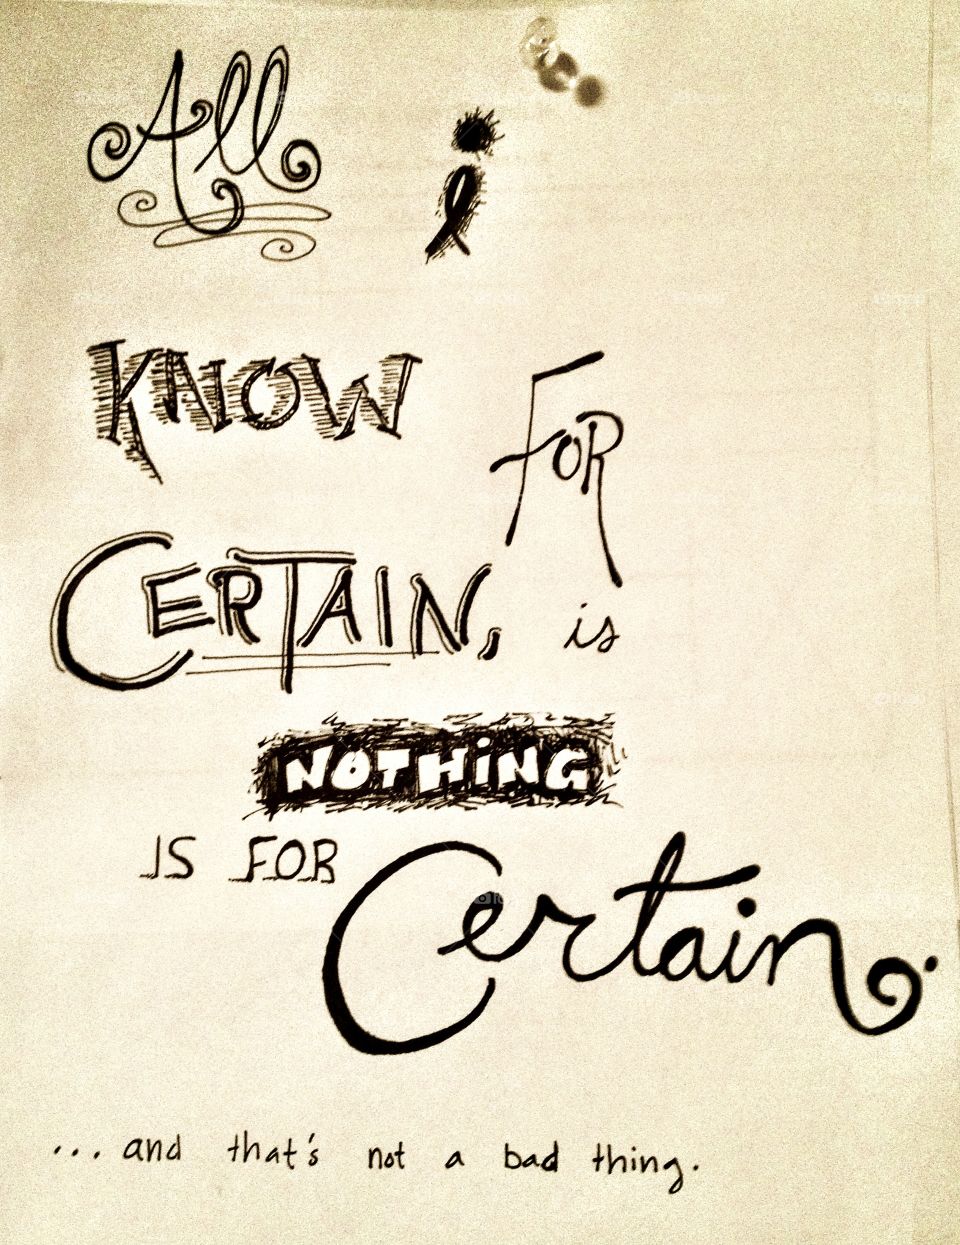 All i
KNOW FOR
CERTAIN, is
NOTHiNG
IS FOR Certain.
... and that's not a bad thing.